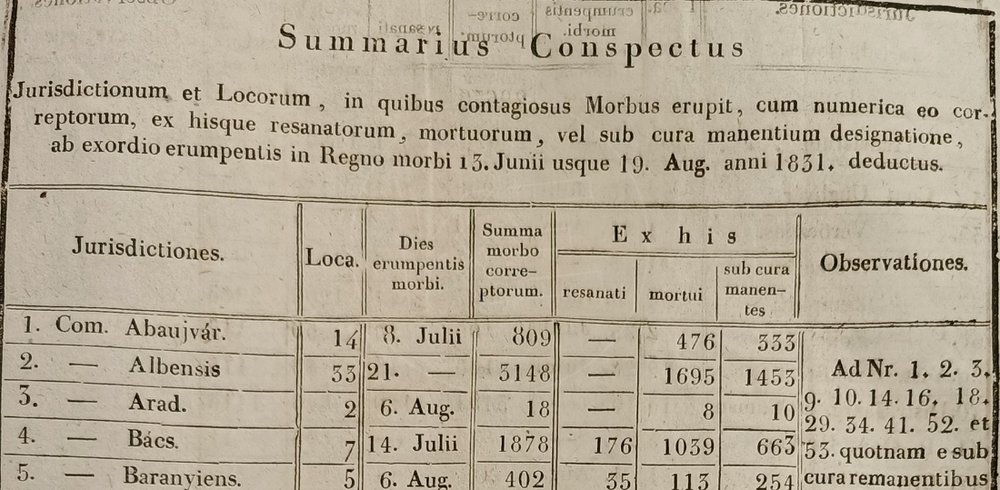 Summarius Conspectus
Jurisdictionum et Locorum, in quibus contagiosus Morbus erupit, cum numerica eo cor-
reptorum, ex hisque resanatorum, mortuorum, vel sub cura manentium designatione,
ab exordio erumpentis in Regno morbi 13. Junii usque 19. Aug. anni 1831. deductus.
Jurisdictiones. Loca. Dies erumpentis morbi. Summa morbo corre- ptorum. Ex his resanati mortui sub cura manen- tes Observationes.
1. Com. Abaujvár. 14 8. Julii 809 — 476 333
2. — Albensis 33 21. — 3148 — 1695 1453 Ad Nr. 1. 2. 3.
3. — Arad. 2 6. Aug. 18 — 8 10 9. 10. 14. 16. 18.
29. 34. 41. 52. et
4. — Bács. 7 14. Julii 1878 176 1039 663 53. quotnam e sub
5. — Baranyiens. 5 6. Aug. 402 35 113 254 cura remanentibus